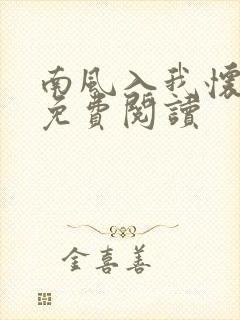 南风入我懷
免費閱讀
金喜善